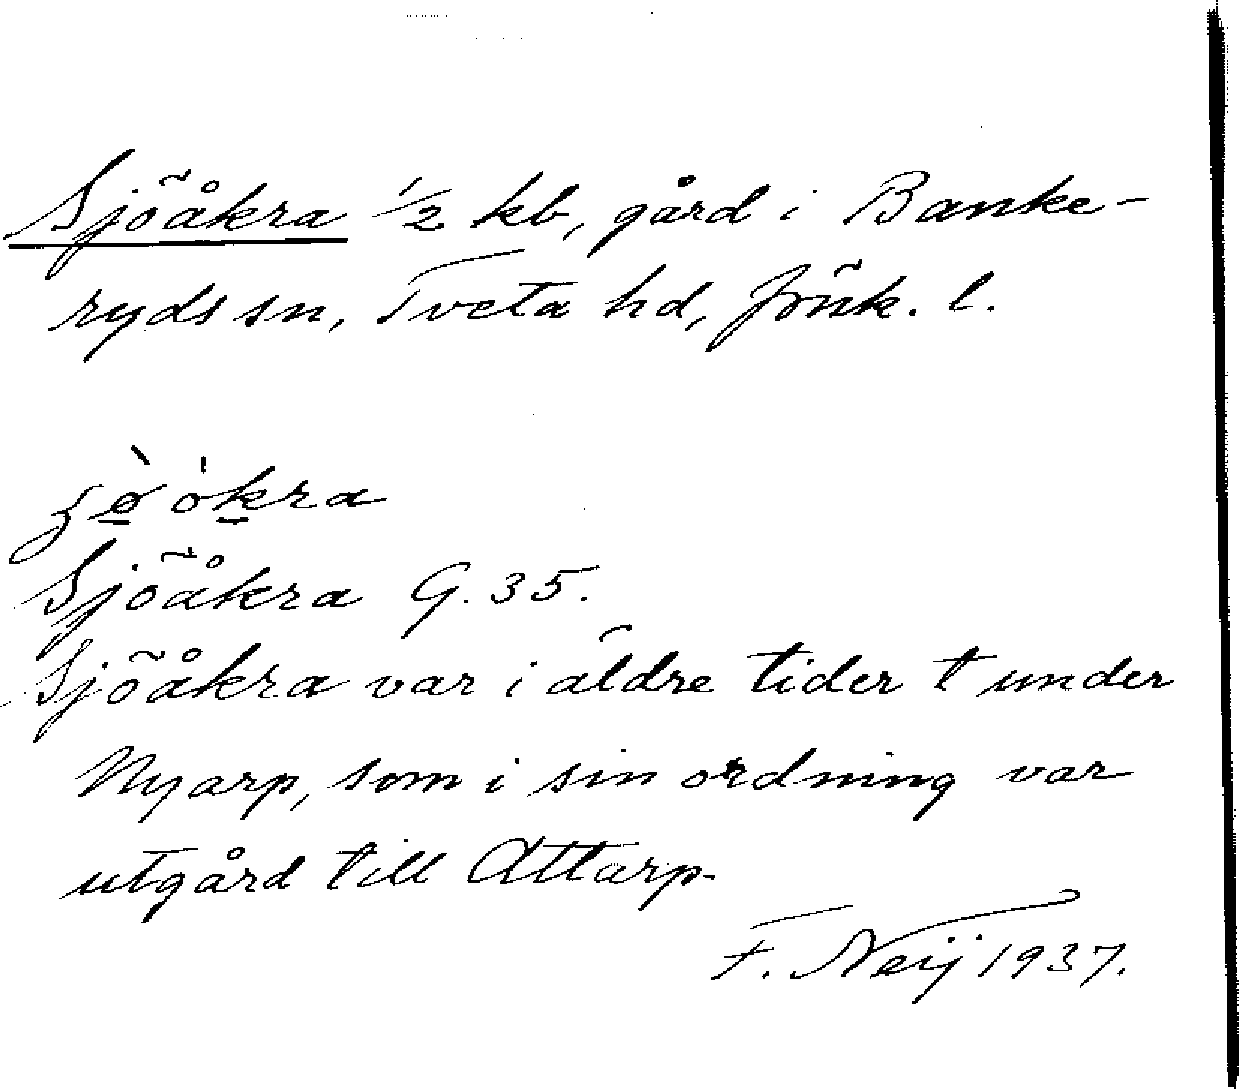 Sjöåkra ½ kb, gård i Banke-
ryds sn, Tveta hd, Jönk. l.
Sjöåkra G. 35.
Sjöåkra var i äldre tider t under
Nyarp, som i sin ordning var
utgård till Attarp.
F. Neij 1937.